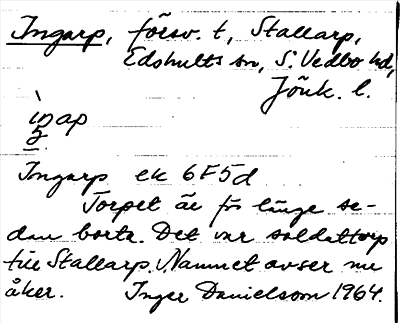 Ingarp, försv. t, Stallarp,
Edshults sn, S. Vedbo hd,
Jönk. l.
ìŋap
Ingarp ek 6F5d
Torpet är för länge se-
dan borta. Det var soldattorp
till Stallarp. Namnet avser nu
åker. Inger Danielsson 1964.